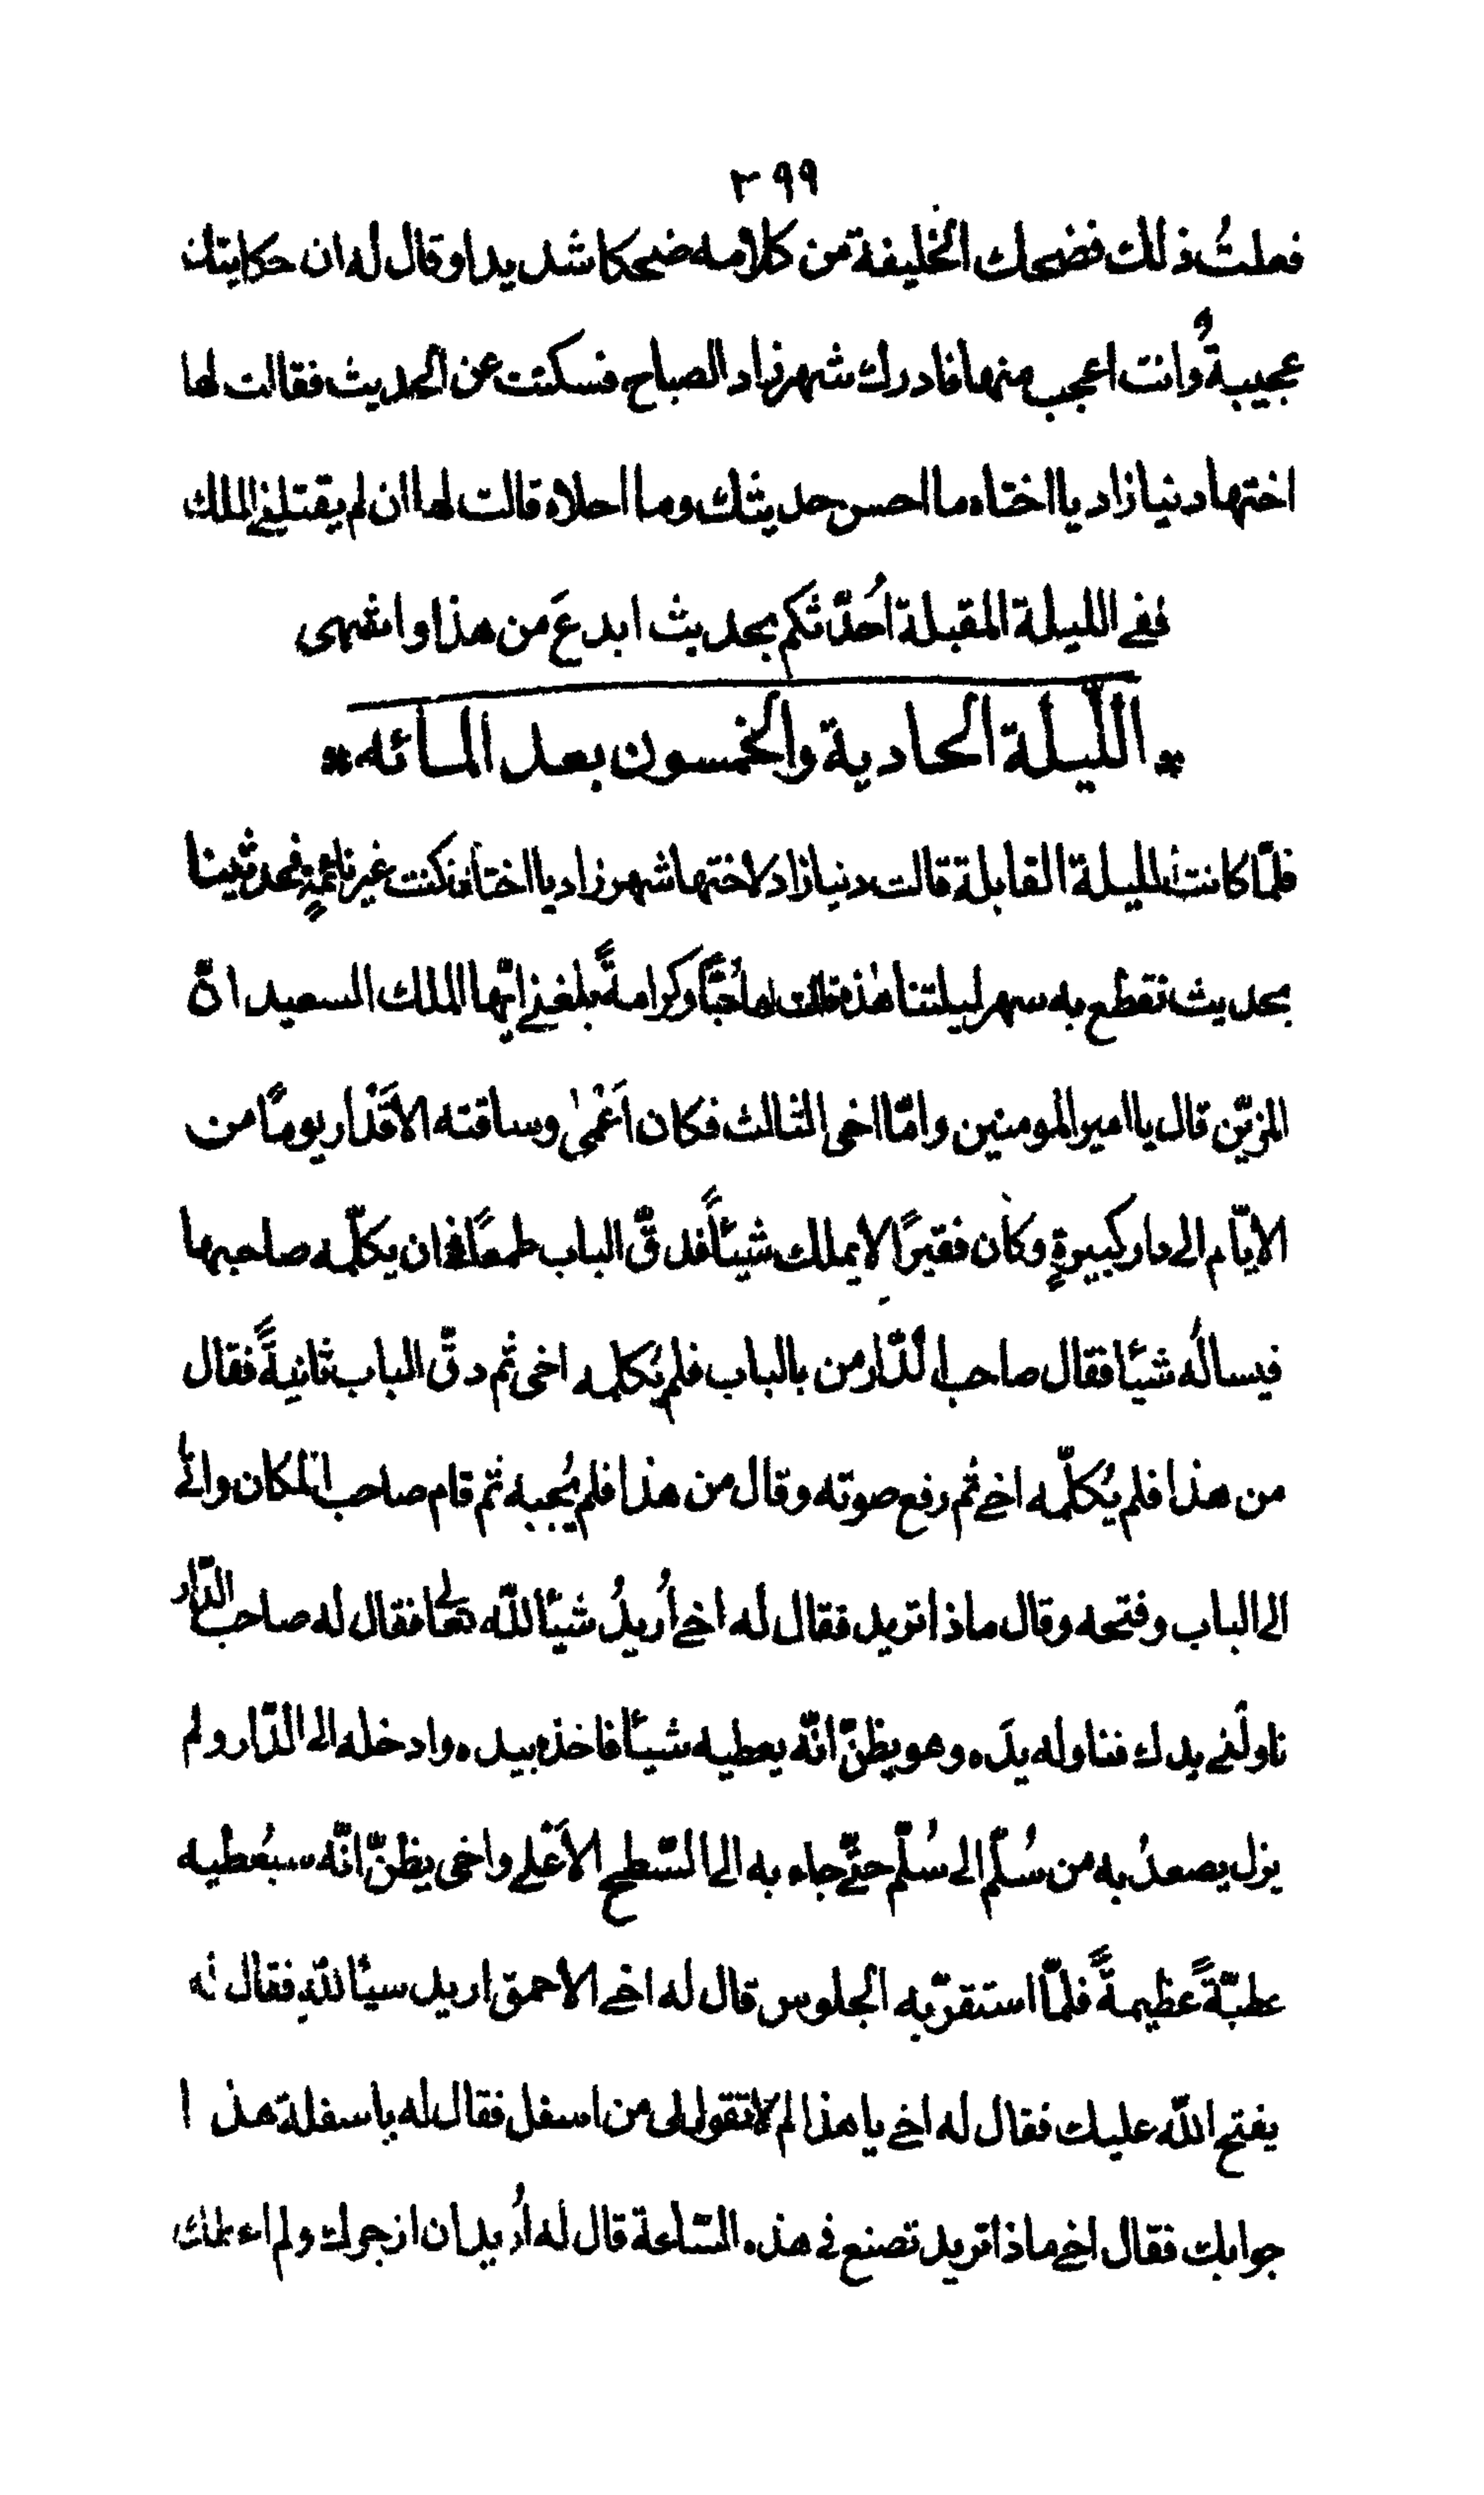 ٣٩٩
فعلتُ ذلك فضحك الخليفة من كلامه ضحكا شديدا وقال له ان حكايتك
عجيبةُ وانت اعجب منها فادرك شهرزاد الصباح فسكتت عن الحديث فقالت لها
اختها دنيازاد يا اختاه ما احسن حديثك وما احلاه قالت لها ان لم يقتلني الملك
ففي الليلة المقبلة اُحدّثكم بحديث ابدعَ من هذا واشهى
* الليلة الحادية والخمسون بعد المائه *
فلمّا كانت الليلة القابلة قالت دنيازاد لاختها شهرزاد يا اختاه ان كنت غير نائمةٍ فحدثينا
بحديث نقطع به سهر ليلتنا هذه قالت لها حُبّاً وكرامةً بلغني ايّها الملك السعيد انّ
المزيّن قال يا امير المومنين وامّا اخى الثالث فكان اَعْمىٰ وساقته الاَقْدار يوماً من
الايّام الى دار كبيرةٍ وكان فقيراً لا يملك شيئاً فدقّ الباب طمعاً فى ان يكلّمه صاحبها
فيسالُه شيئاً فقال صاحب الدّار من بالباب فلم يُكلمه اخى ثم دقّ الباب ثانيةً فقال
من هذا فلم يُكلّمه اخي ثم رفع صوته وقال من هذا فلم يُجبه ثم قام صاحب المكان واتى
الى الباب وفتحه وقال ماذا تريد فقال له اخي اُريدُ شيئاً للّه تعالى فقال له صاحب الدّار
ناولْني يدك فناوله يدَه وهو يظنّ انّه يعطيه شيئاً فاخذه بيده وادخله الى الدّار ولم
يزل يصعدُ به من سُلّم الى سُلّم حتّى جاء به الى السّطح الاَعْلى واخى يظنّ انّه سيُعطيه
عطيّةً عظيمةً فلمّا استقرّ به الجلوس قال له اخي الاحمق اريد سيئاً للّهِ فقال له
يفتح اللّه عليك فقال له اخي يا هذا لم لا تقول لى من اسفل فقال له يا سفلة هذا
جوابك فقال اخي ماذا تريد تصنع في هذه السّاعة قال له اُريد ان ارجوك ولم اعطك